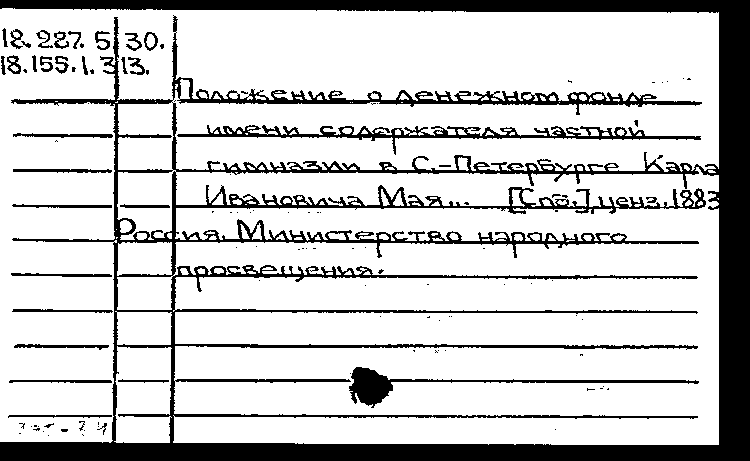 18.287.5.30.
18.155.1.313.
Положение о денежном фонде
имени содержателя частной
гимназии в С.-Петербурге Карла
Ивановича Мая... [Спб.], ценз. 1883
Россия. Министерство народного
просвещения.